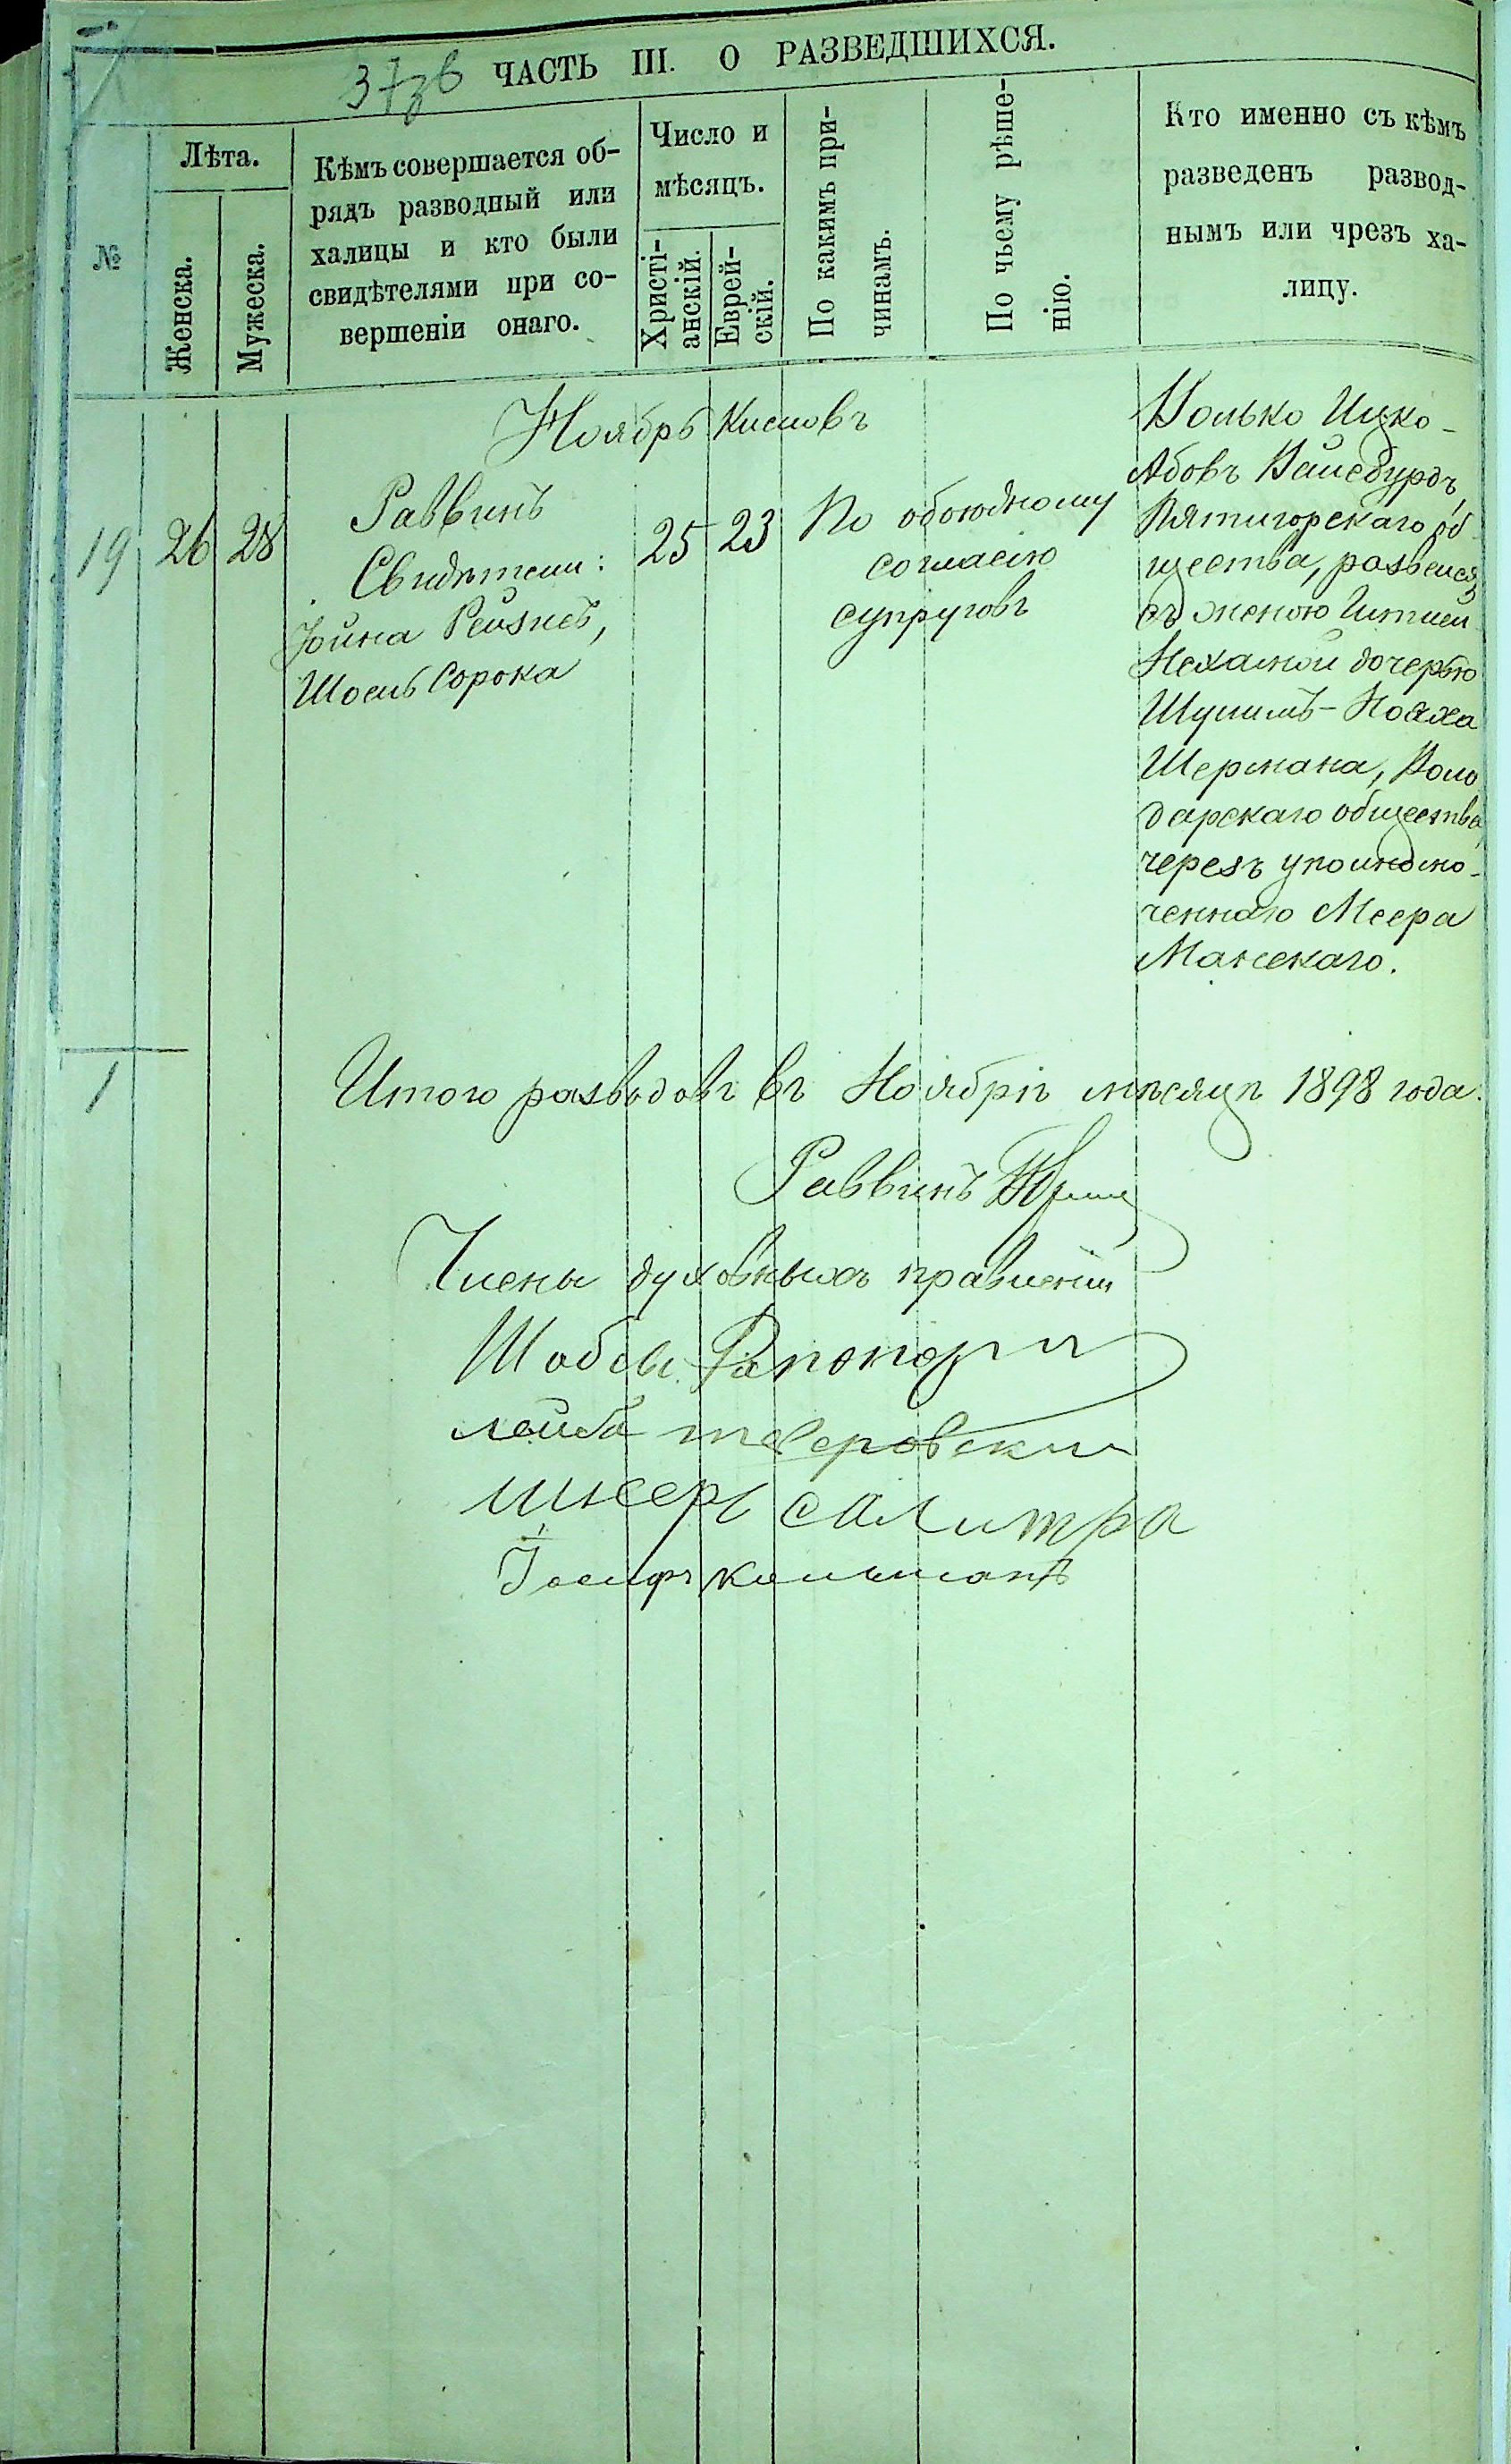 ЧАСТЬ III. О РАЗВЕДШИХСЯ.
№
Лѣта.
Женска.
Мужеска.
Кѣмъ совершается об-
рядъ разводный или
халицы и кто были
свидѣтелями при со-
вершеніи онаго.
Число и
мѣсяцъ.
Христі-
анскій.
Еврей-
скій.
По какимъ при-
чинамъ.
По чьему рѣше-
нію.
Кто именно съ кѣмъ
разведенъ развод-
нымъ или чрезъ ха-
лицу.
Ноябрь Кислевъ
19 26 28
Раввинъ
Свидѣтели:
Іойна Рейзисъ,
Шоель Сорока
25 23
По обоюдному
согласію
супруговъ
Волько Ицко-
Абовъ Вайсбурдъ,
Пятигорскаго об-
щества, развелся
съ женою Итлей
Нехамой дочерью
Шулимъ-Нояха
Шермана, Воло
дарскаго общества,
черезъ уполномо-
ченнаго Меера
Манскаго.
1 Итого разводовъ въ Ноябрѣ мѣсяцѣ 1898 года.
Раввинъ
Члены духовныхъ правленій
Шобсы Рапопорт
лейба тверовский
шнеерь салитра
Іосифъ кельманъ